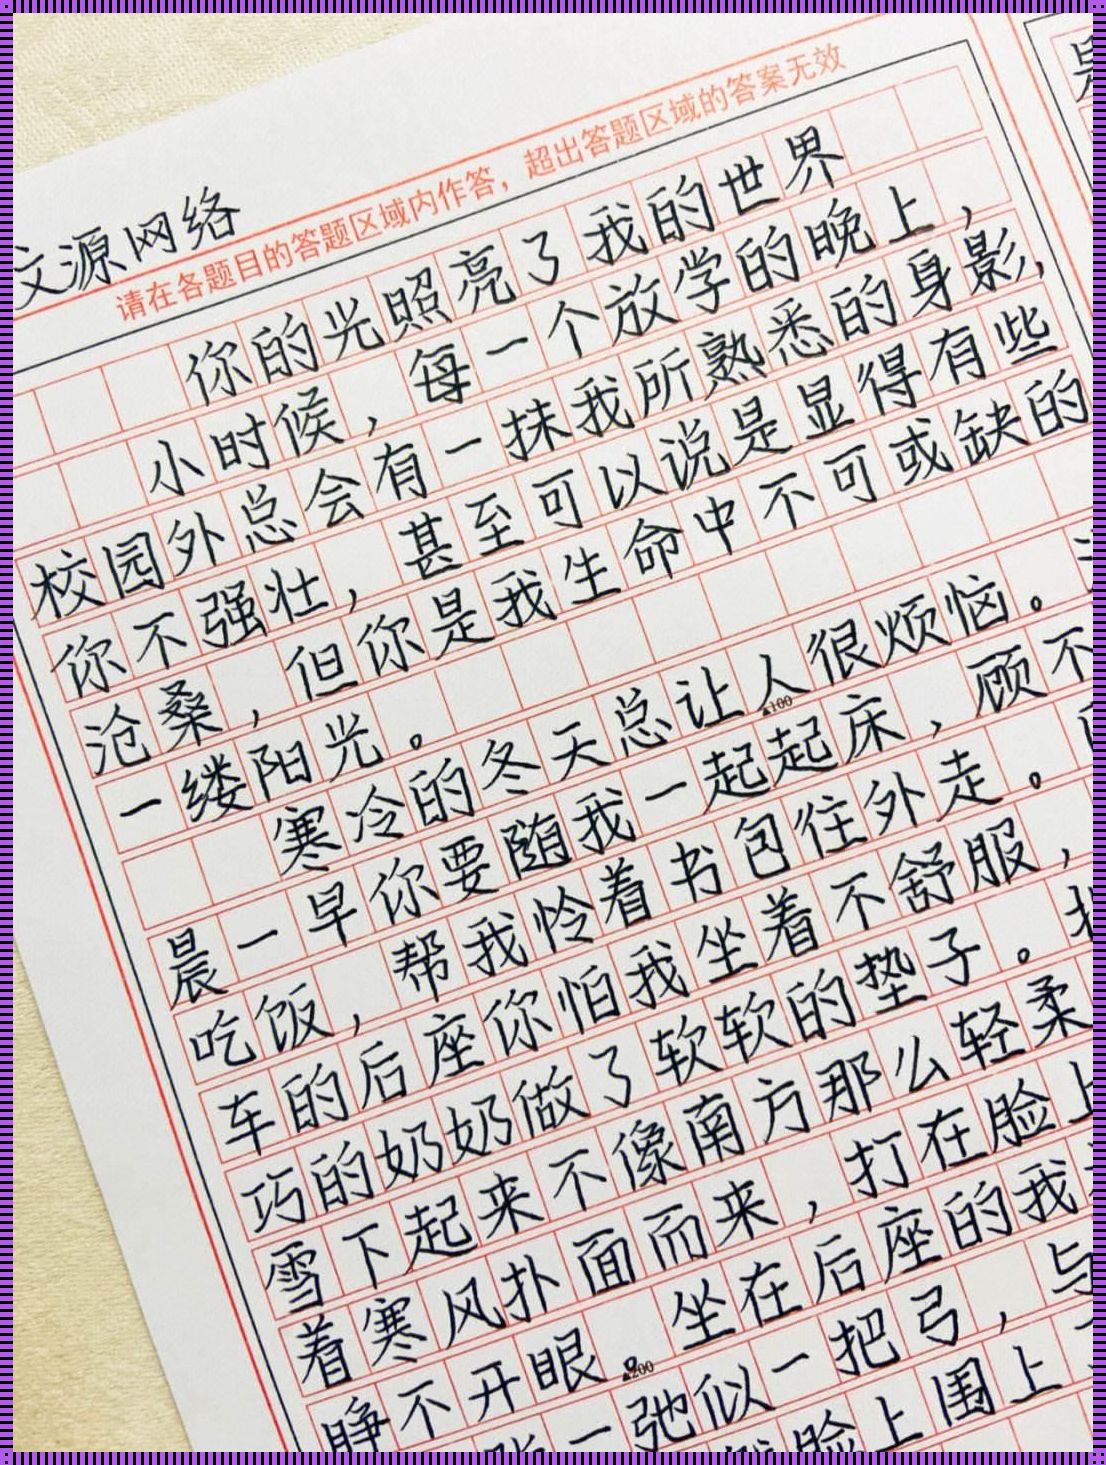 文源网络
请在各题目的答题区域内作答，超出答题区域的答案无效
你的光照亮了我的世界
小时候，每一个放学的晚上，
校园外总会有一抹我所熟悉的身影，
你不强壮，甚至可以说是显得有些
沧桑，但你是我生命中不可或缺的
一缕阳光。
寒冷的冬天总让人很烦恼。
▲100
晨一早你要随我一起起床，顾不
吃饭，帮我怜着书包往外走。
车的后座你怕我坐着不舒服，
巧的奶奶做了软软的垫子。
雪下起来不像南方那么轻柔
着寒风扑面而来，打在脸上
睁不开眼。坐在后座的我
▲200
一弛似一把弓，与
脸上围上